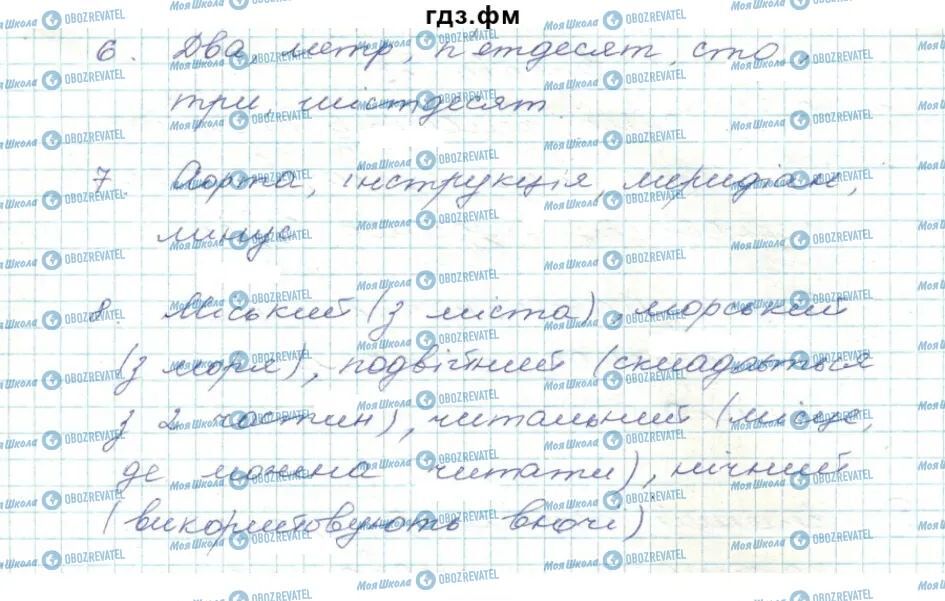 гдз.фм
6. Два, метр, п'ятдесят, сто,
три, шістдесят
7. Аорта, інструкція, меридіан,
мінус
8. Міський (з міста), морський
(з моря), подвійний (складається
з 2 частин), читальний (місце,
де можна читати), нічний
(використовують вночі)